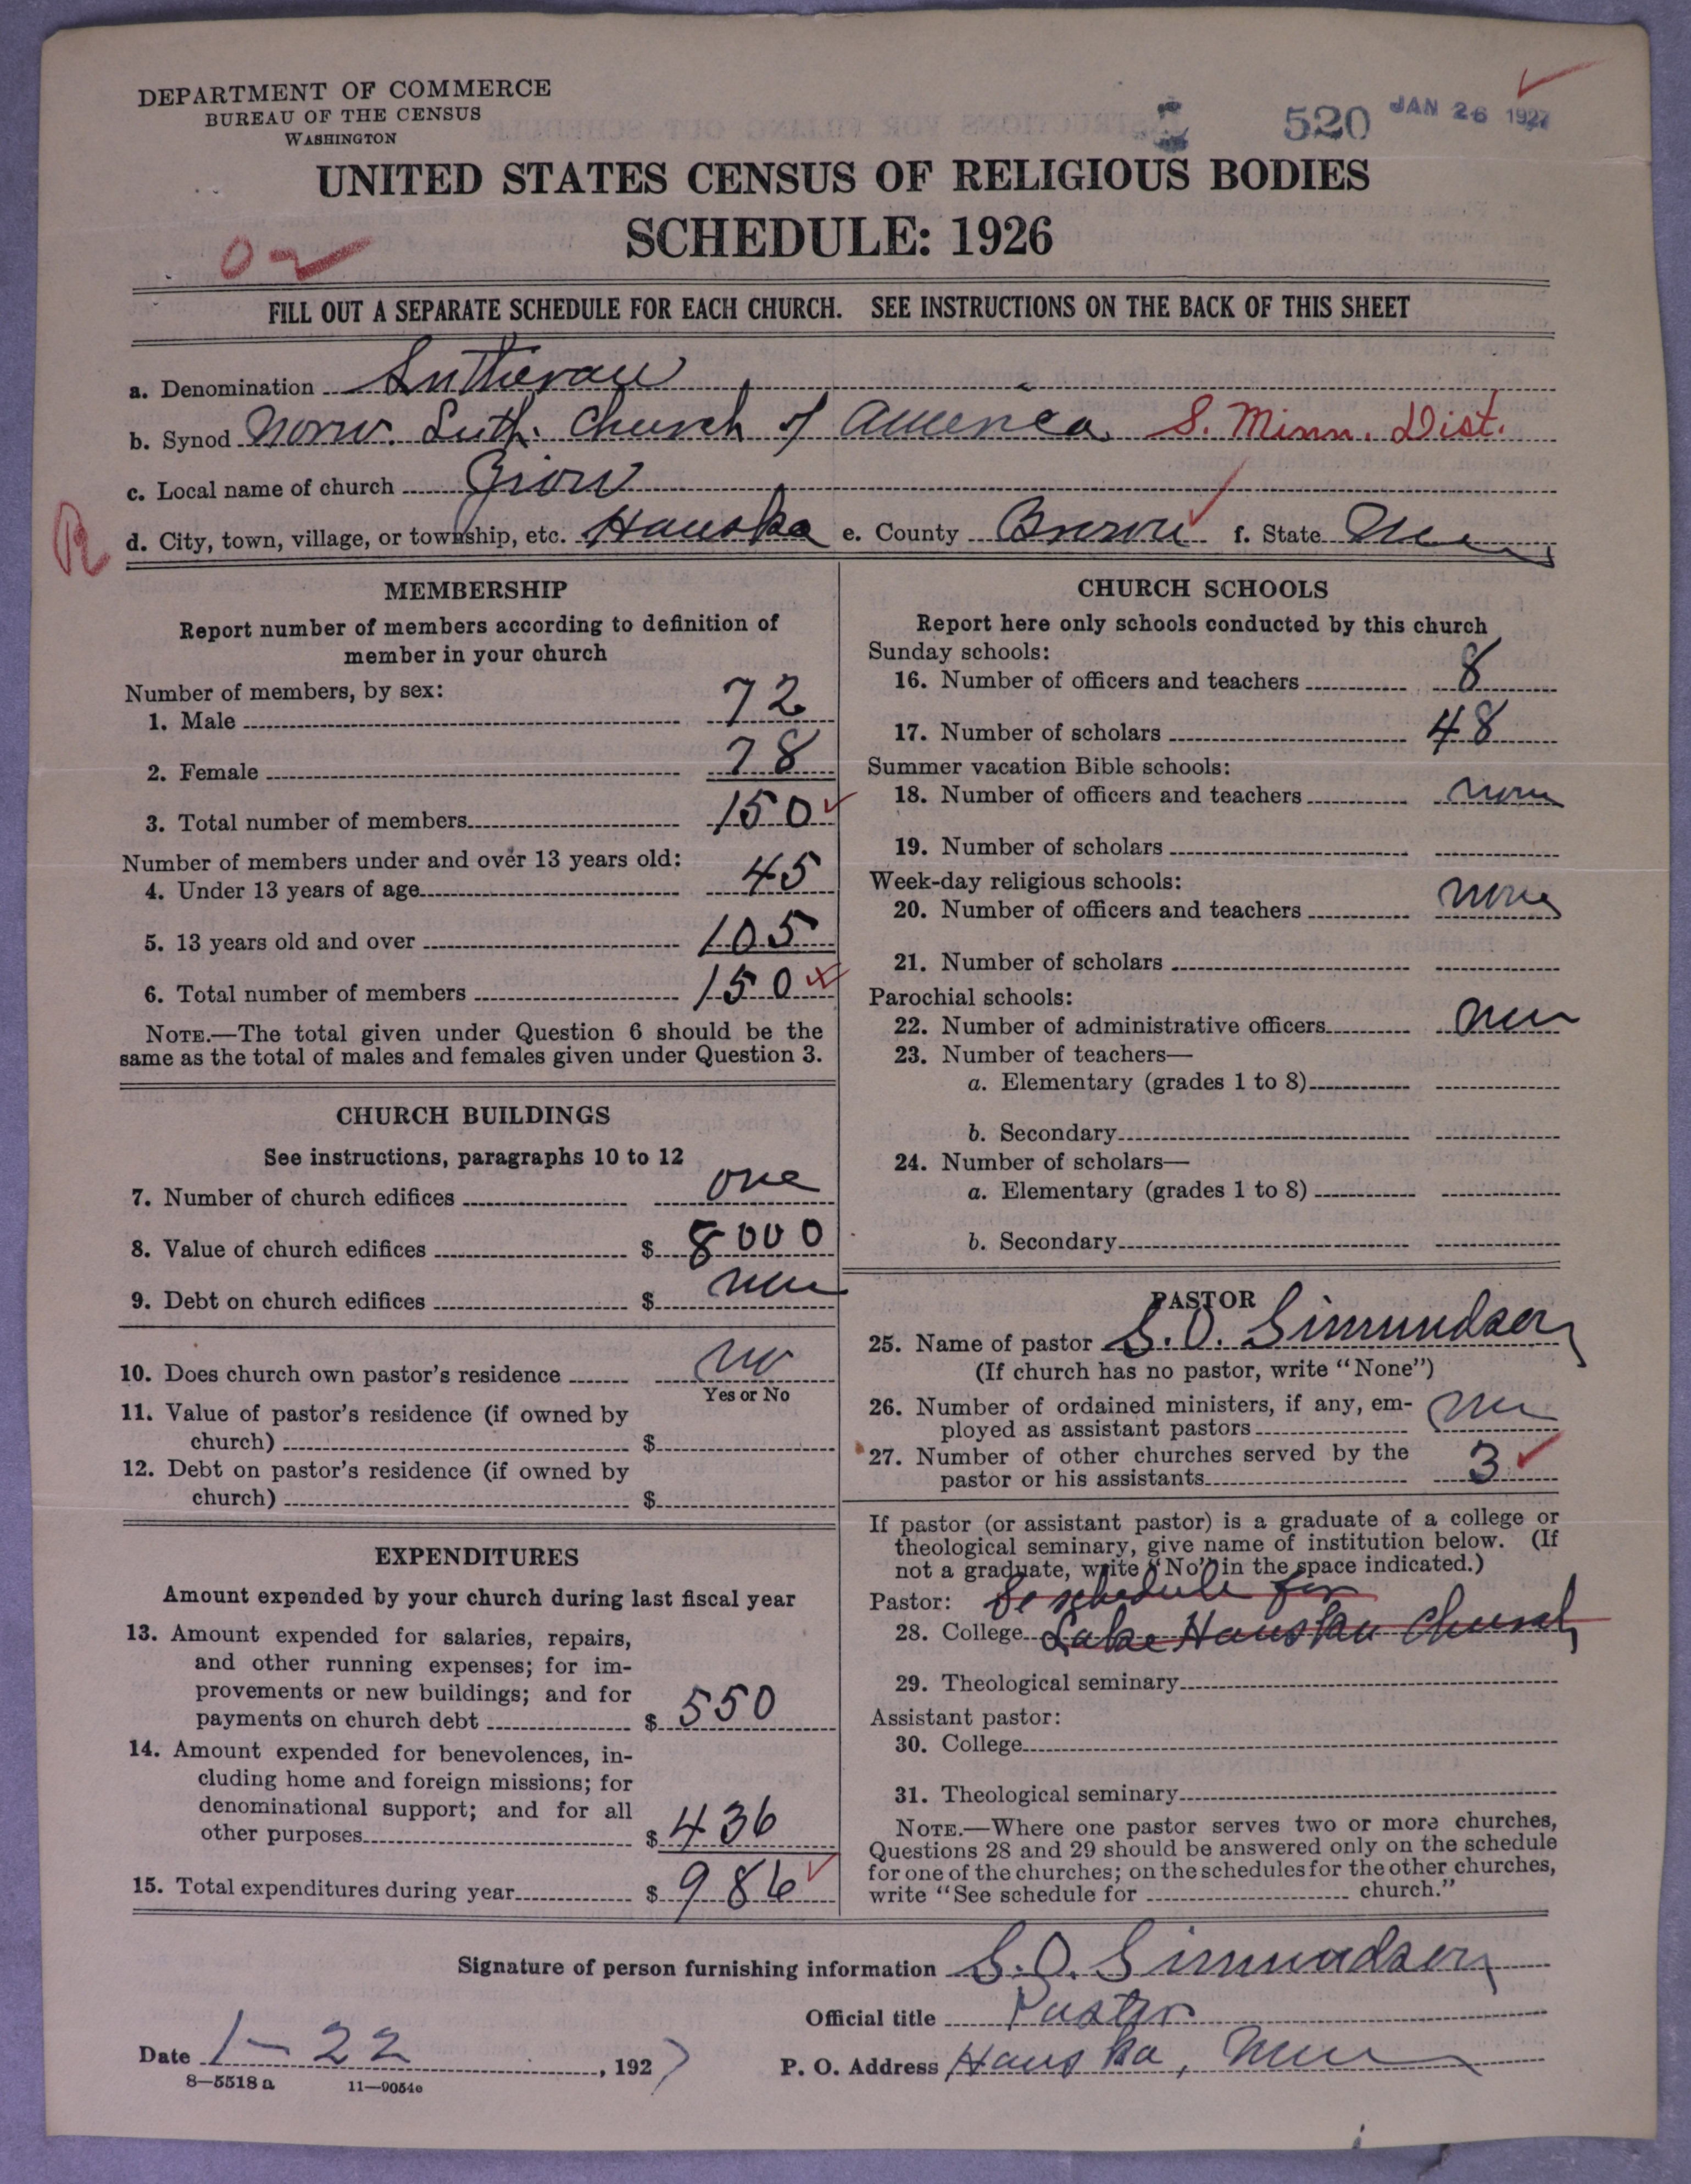 DEPARTMENT OF COMMERCE
BUREAU OF THE CENSUS
WASHINGTON
520 JAN 26 1927
UNITED STATES CENSUS OF RELIGIOUS BODIES
SCHEDULE: 1926
FILL OUT A SEPARATE SCHEDULE FOR EACH CHURCH. SEE INSTRUCTIONS ON THE BACK OF THIS SHEET
a. Denomination Lutheran
b. Synod Norw. Luth. Church of America S. Minn. Dist.
c. Local name of church Zion
R
d. City, town, village, or township, etc. Hanska e. County Brown f. State Minn
MEMBERSHIP
Report number of members according to definition of
member in your church
Number of members, by sex:
1. Male 72
2. Female 78
3. Total number of members 150
Number of members under and over 13 years old:
4. Under 13 years of age 45
5. 13 years old and over 105
6. Total number of members 150
NOTE.—The total given under Question 6 should be the
same as the total of males and females given under Question 3.
CHURCH BUILDINGS
See instructions, paragraphs 10 to 12
7. Number of church edifices one
8. Value of church edifices $ 8000
9. Debt on church edifices $ none
10. Does church own pastor's residence no
Yes or No
11. Value of pastor's residence (if owned by
church) $
12. Debt on pastor's residence (if owned by
church) $
EXPENDITURES
Amount expended by your church during last fiscal year
13. Amount expended for salaries, repairs,
and other running expenses; for im-
provements or new buildings; and for
payments on church debt $ 550
14. Amount expended for benevolences, in-
cluding home and foreign missions; for
denominational support; and for all
other purposes $ 436
15. Total expenditures during year $ 986
CHURCH SCHOOLS
Report here only schools conducted by this church
Sunday schools:
16. Number of officers and teachers 8
17. Number of scholars 48
Summer vacation Bible schools:
18. Number of officers and teachers none
19. Number of scholars
Week-day religious schools:
20. Number of officers and teachers none
21. Number of scholars
Parochial schools:
22. Number of administrative officers none
23. Number of teachers—
a. Elementary (grades 1 to 8)
b. Secondary
24. Number of scholars—
a. Elementary (grades 1 to 8)
b. Secondary
PASTOR
25. Name of pastor S. O. Simundson
(If church has no pastor, write "None")
26. Number of ordained ministers, if any, em-
ployed as assistant pastors no
27. Number of other churches served by the
pastor or his assistants 3
If pastor (or assistant pastor) is a graduate of a college or
theological seminary, give name of institution below. (If
not a graduate, write "No" in the space indicated.)
Pastor: Se schedule for
28. College Lake Hanska Church
29. Theological seminary
Assistant pastor:
30. College
31. Theological seminary
NOTE.—Where one pastor serves two or more churches,
Questions 28 and 29 should be answered only on the schedule
for one of the churches; on the schedules for the other churches,
write "See schedule for church."
Signature of person furnishing information S. O. Simundson
Official title Pastor
Date 1-22, 1927 P. O. Address Hanska, Minn
8—5518 a 11—9054c